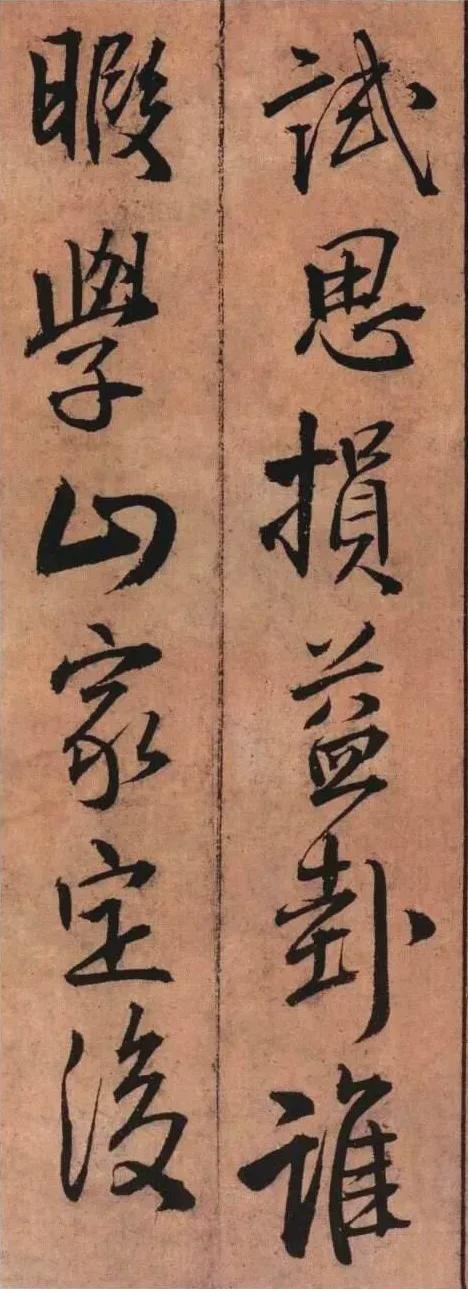 試思損益卦誰
暇學山家定後